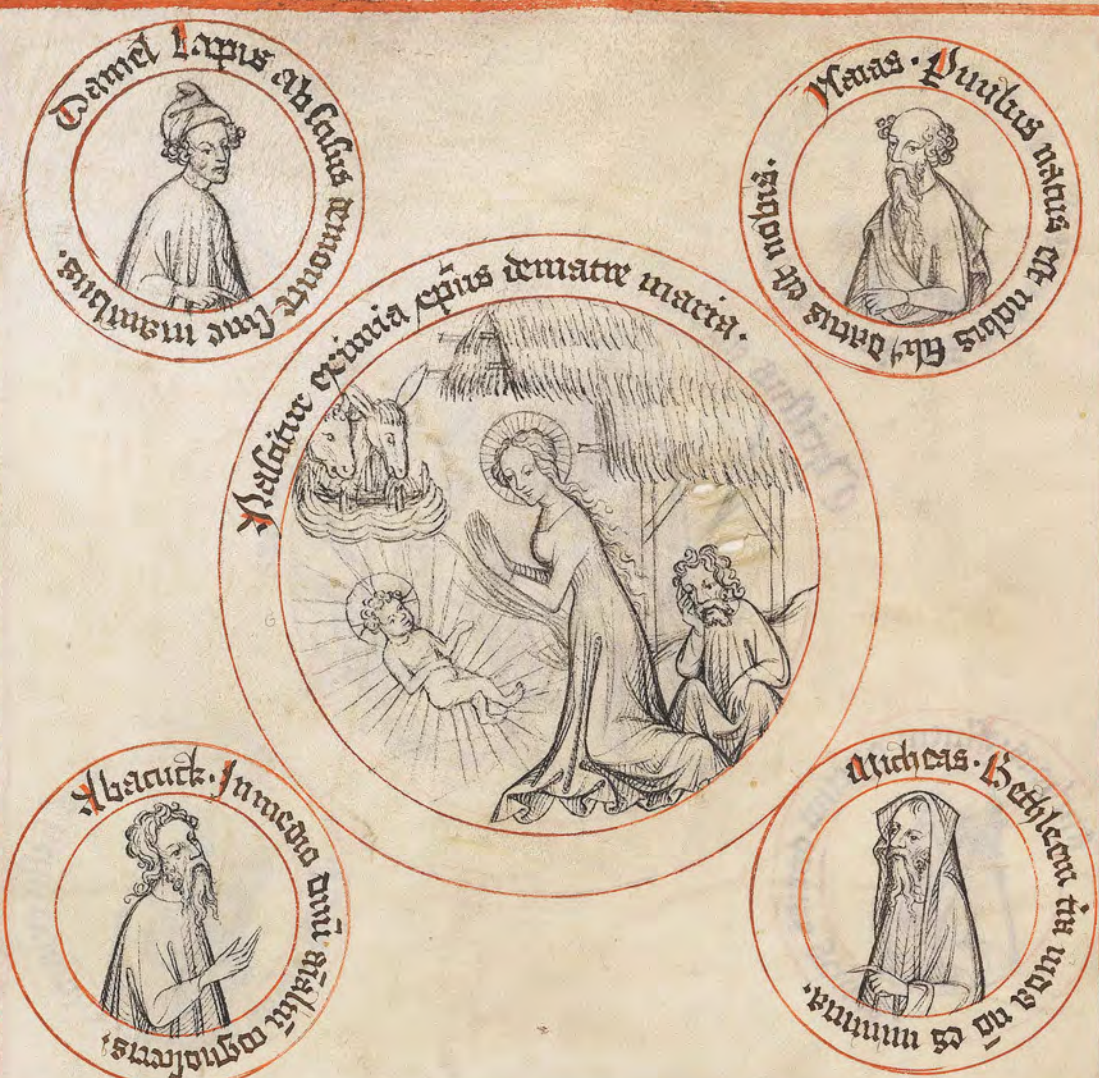 Daniel Lapis abscisus de monte sine manibus.
Ysaias · Puulus natus est nobis fili9 datus est nobis.
Nascitur eximia xp̄us dematre maria.
Abacuck · Inmedio duū aīaliū cognosceris;
Micheas · Bethleem tr̄a iuda nō es minima.